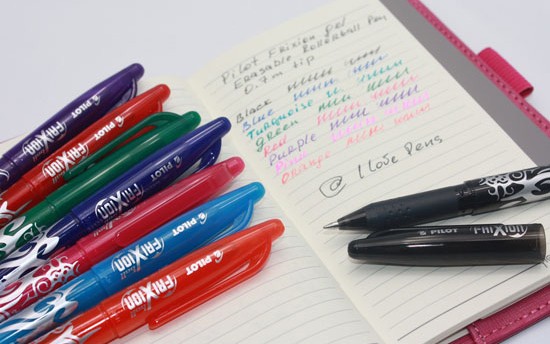 Pilot Frixion gel
Erasable Rollerball Pen
Black
Blue
Turquoise
Green
Red
Purple
Pink
Orange
@ I Love Pens
PILOT
FRIXION
PILOT
FRIXION
PILOT
FRIXION
PILOT
FRIXION
PILOT
FRIXION
PILOT
FRIXION
PILOT
FRIXION
PILOT
FRIXION